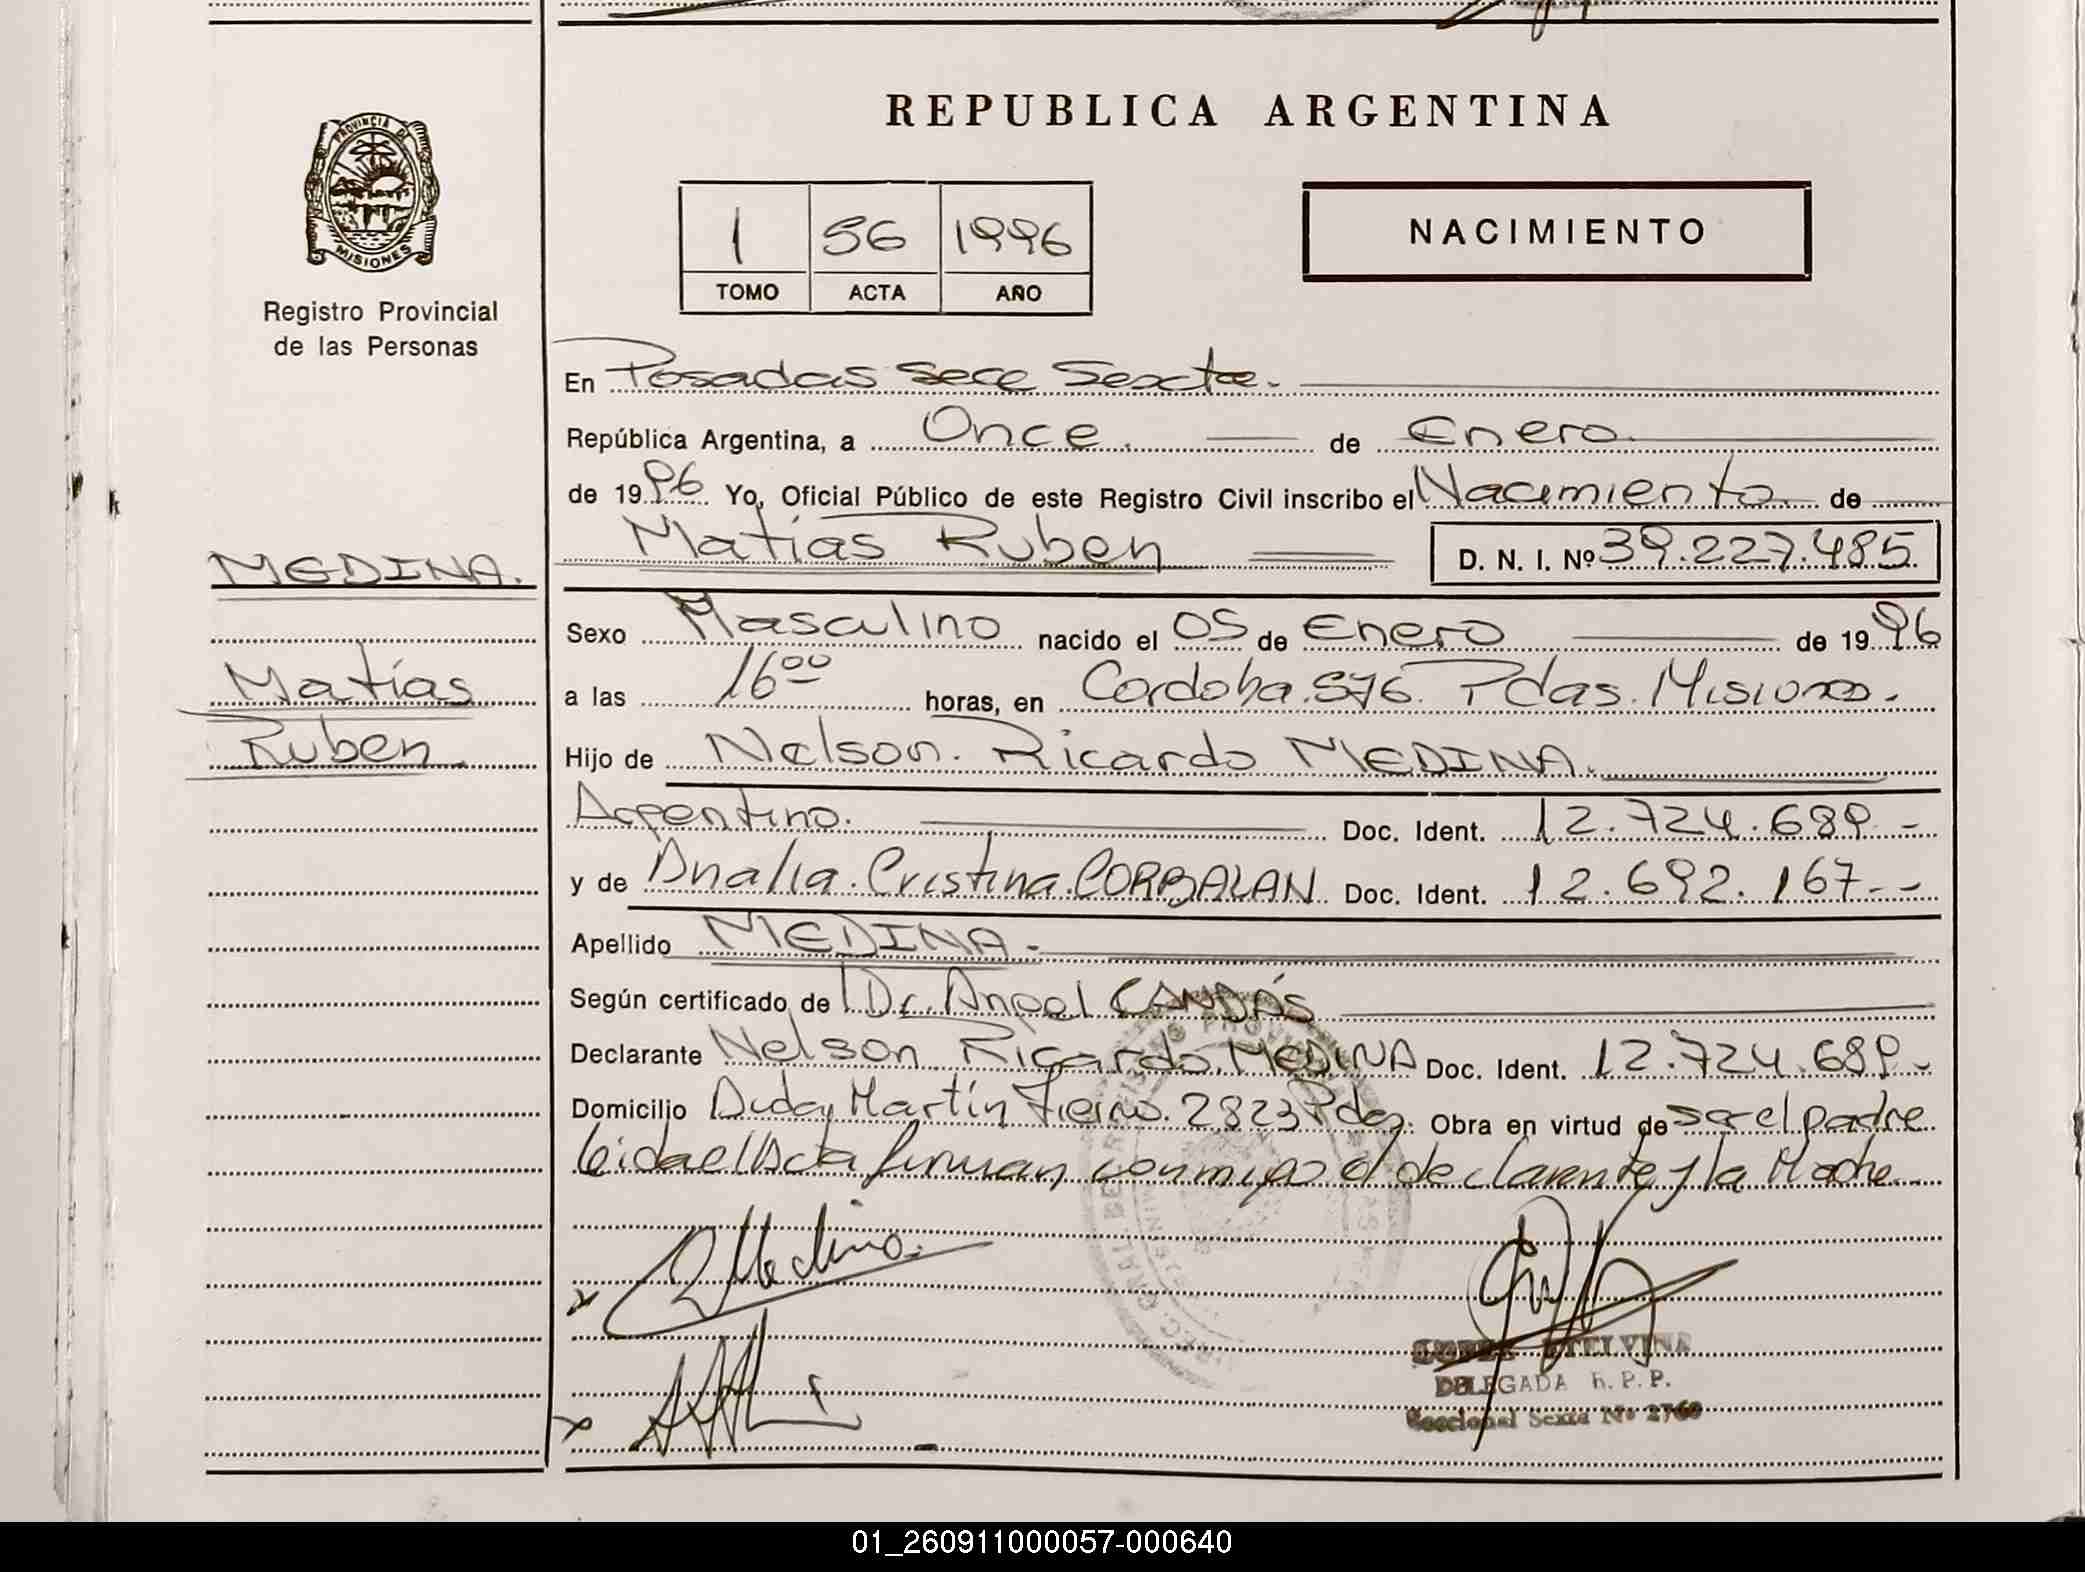 REPUBLICA ARGENTINA
PROVINCIA DE
MISIONES
Registro Provincial
de las Personas
1 56 1996
TOMO ACTA AÑO
NACIMIENTO
En Posadas Secc Sexta.
República Argentina, a Once. de Enero.
de 1996 Yo, Oficial Público de este Registro Civil inscribo el Nacimiento de
Matías Ruben D. N. I. Nº 39.227.485.
MEDINA.
Matías
Ruben.
Sexo Masculino nacido el 05 de Enero de 1996
a las 16 00 horas, en Cordoba. 576. Pdas. Misiones.
Hijo de Nelson. Ricardo MEDINA.
Argentino. Doc. Ident. 12.724.689.-
y de Analia. Cristina. CORBALAN Doc. Ident. 12.692.167.-
Apellido MEDINA.
Según certificado de Dr. Angel CANDÁS
Declarante Nelson Ricardo. MEDINA Doc. Ident. 12.724.689.-
Domicilio Avda, Martín Fierro. 2823 Pdas. Obra en virtud de ser el padre
leida el Acta firman conmigo el declarante y la Madre
RMedina.
ETELVINA
DELEGADA R. P. P.
Seccional Sexta Nº 2760
01_260911000057-000640